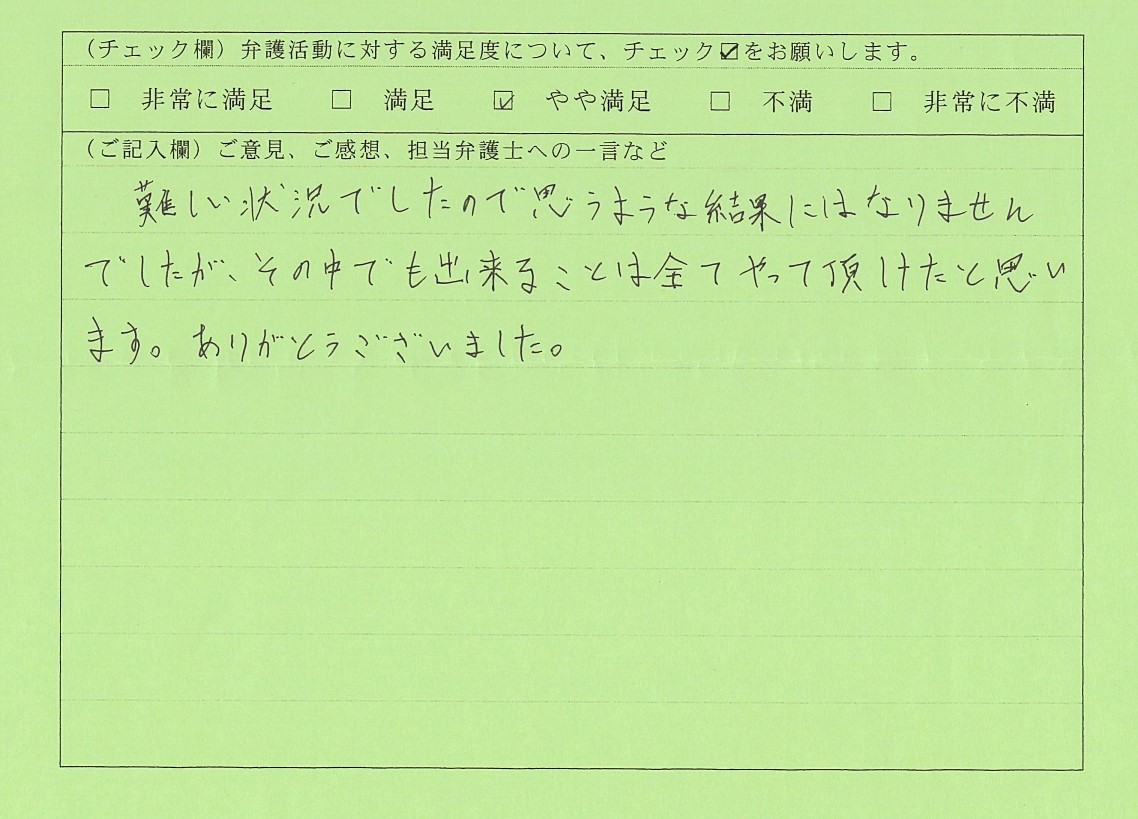 (チェック欄) 弁護活動に対する満足度について、チェック☑をお願いします。
□ 非常に満足 □ 満足 ☑ やや満足 □ 不満 □ 非常に不満
(ご記入欄) ご意見、ご感想、担当弁護士への一言など
難しい状況でしたので思うような結果にはなりません
でしたが、その中でも出来ることは全てやって頂けたと思い
ます。ありがとうございました。